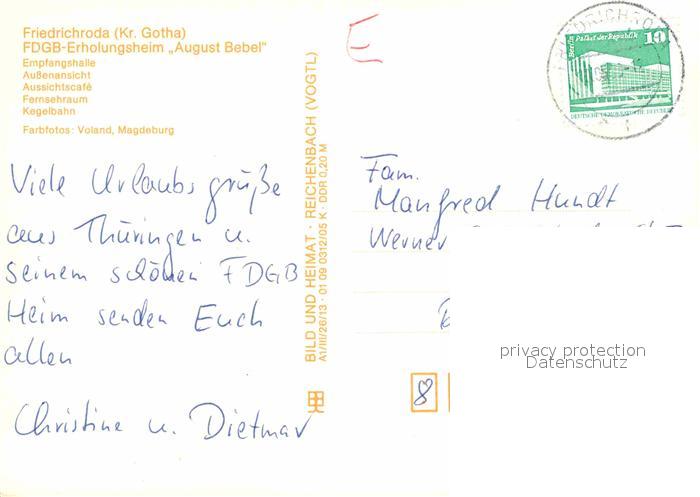 Friedrichroda (Kr. Gotha)
FDGB-Erholungsheim „August Bebel"
Empfangshalle
Außenansicht
Aussichtscafé
Fernsehraum
Kegelbahn
Farbfotos: Voland, Magdeburg
Viele Urlaubsgrüße
aus Thüringen u.
seinem schönen FDGB
Heim senden Euch
allen
Christine u. Dietmar
BILD UND HEIMAT · REICHENBACH (VOGTL)
A1/III/26/13 · 01 09 0312/05 K · DDR 0,20 M
E
Berlin Palast der Republik 10
DEUTSCHE DEMOKRATISCHE REPUBLIK
Fam.
Manfred Hundt
Werner
8
privacy protection
Datenschutz